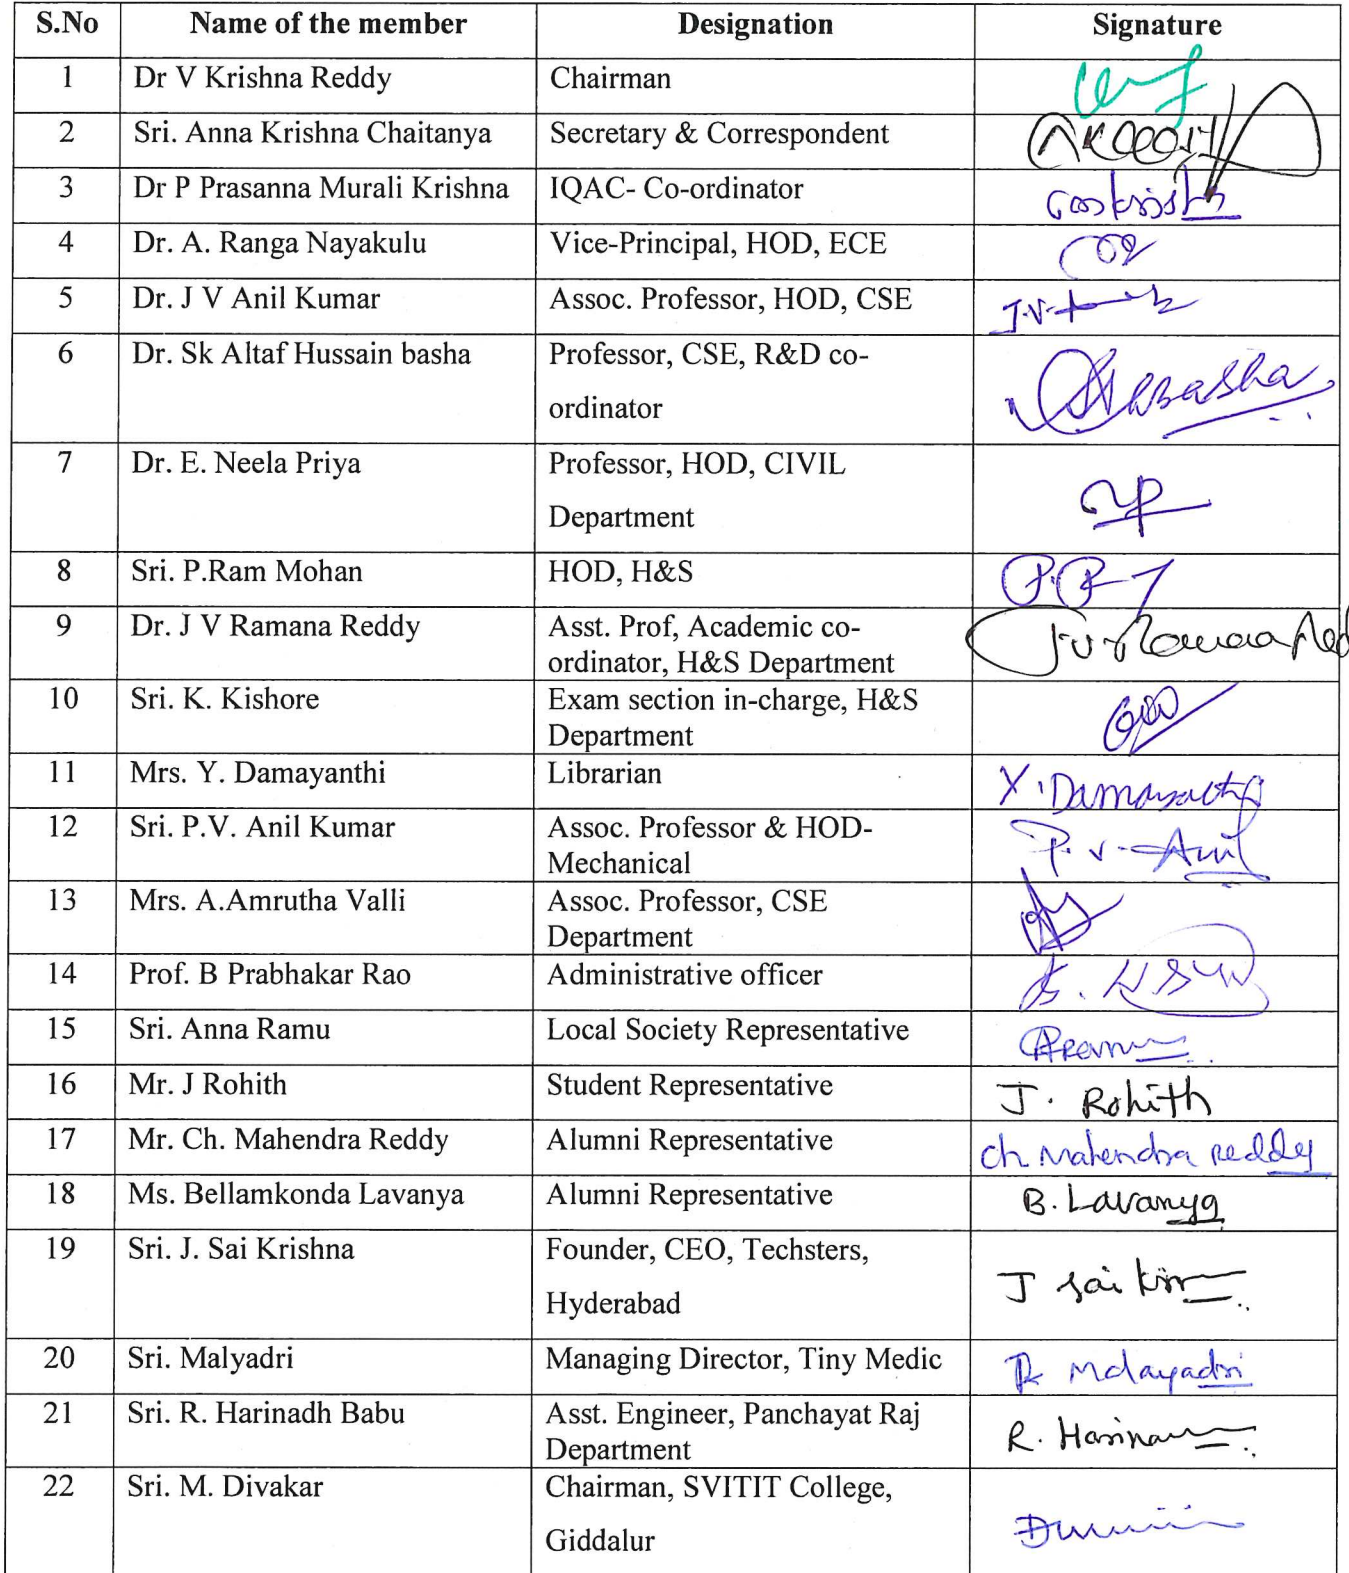 S.No Name of the member Designation Signature
1 Dr V Krishna Reddy Chairman
2 Sri. Anna Krishna Chaitanya Secretary & Correspondent
3 Dr P Prasanna Murali Krishna IQAC- Co-ordinator
4 Dr. A. Ranga Nayakulu Vice-Principal, HOD, ECE
5 Dr. J V Anil Kumar Assoc. Professor, HOD, CSE
6 Dr. Sk Altaf Hussain basha Professor, CSE, R&D co-
ordinator
7 Dr. E. Neela Priya Professor, HOD, CIVIL
Department
8 Sri. P.Ram Mohan HOD, H&S
9 Dr. J V Ramana Reddy Asst. Prof, Academic co-
ordinator, H&S Department
10 Sri. K. Kishore Exam section in-charge, H&S
Department
11 Mrs. Y. Damayanthi Librarian Y. Damayanthi
12 Sri. P.V. Anil Kumar Assoc. Professor & HOD- P.V. Anil
Mechanical
13 Mrs. A.Amrutha Valli Assoc. Professor, CSE
Department
14 Prof. B Prabhakar Rao Administrative officer
15 Sri. Anna Ramu Local Society Representative
16 Mr. J Rohith Student Representative J. Rohith
17 Mr. Ch. Mahendra Reddy Alumni Representative Ch Mahendra Reddy
18 Ms. Bellamkonda Lavanya Alumni Representative B. Lavanya
19 Sri. J. Sai Krishna Founder, CEO, Techsters, J Sai
Hyderabad
20 Sri. Malyadri Managing Director, Tiny Medic
21 Sri. R. Harinadh Babu Asst. Engineer, Panchayat Raj
Department
22 Sri. M. Divakar Chairman, SVITIT College,
Giddalur